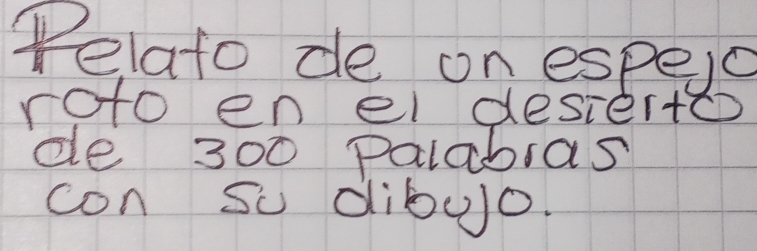 Relato de un espejo
roto en el desierto
de 300 palabras
con su dibujo.